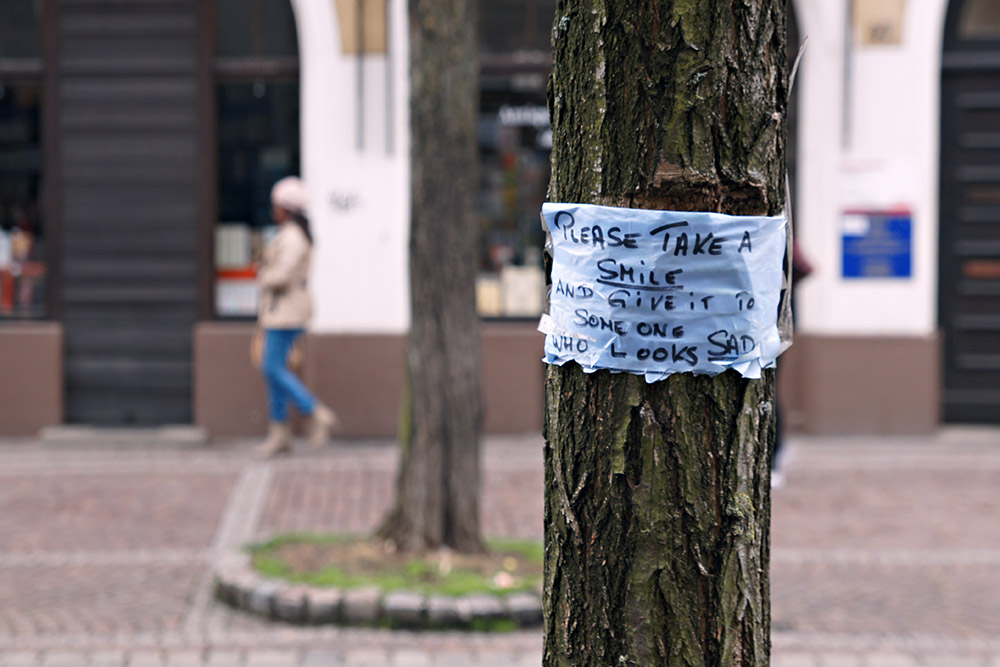 PLEASE TAKE A
SMILE
AND GIVE IT TO
SOME ONE
WHO LOOKS SAD